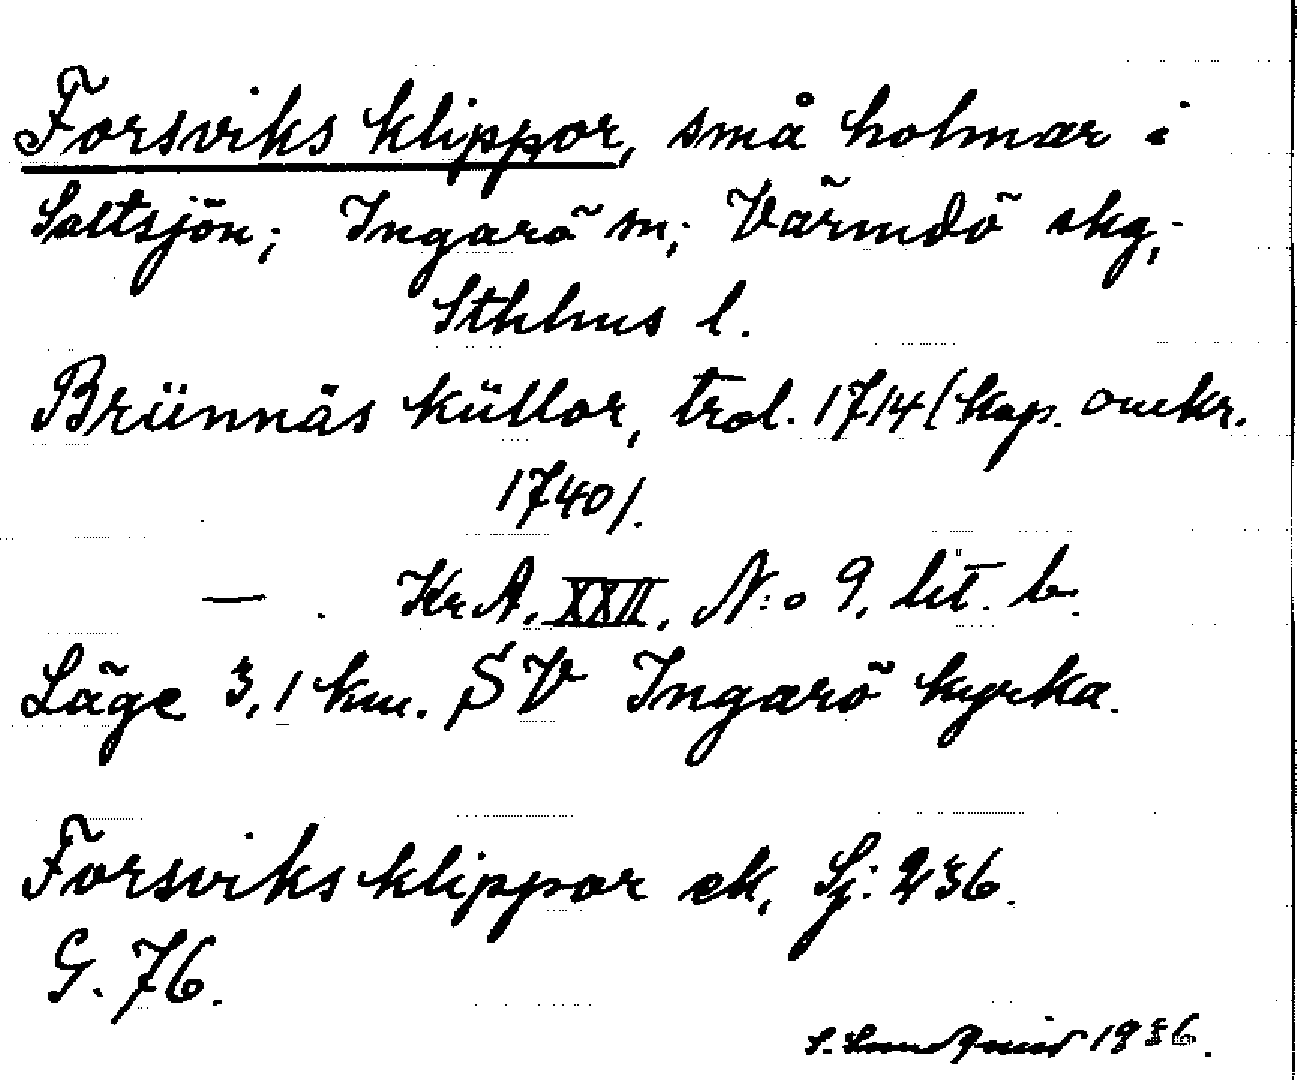 Forsviks klippor, små holmar i
Saltsjön; Ingarö sn; Värmdö skg,
Sthlms l.
Brünnäs küllor, trol. 1714 (kop. omkr.
1740).
— . KrA, XXII, N:o 9, lit. b.
Läge 3,1 km. SV Ingarö kyrka.
Forsviksklippor ek, Sj: 236.
G. 76.
S. 1936.